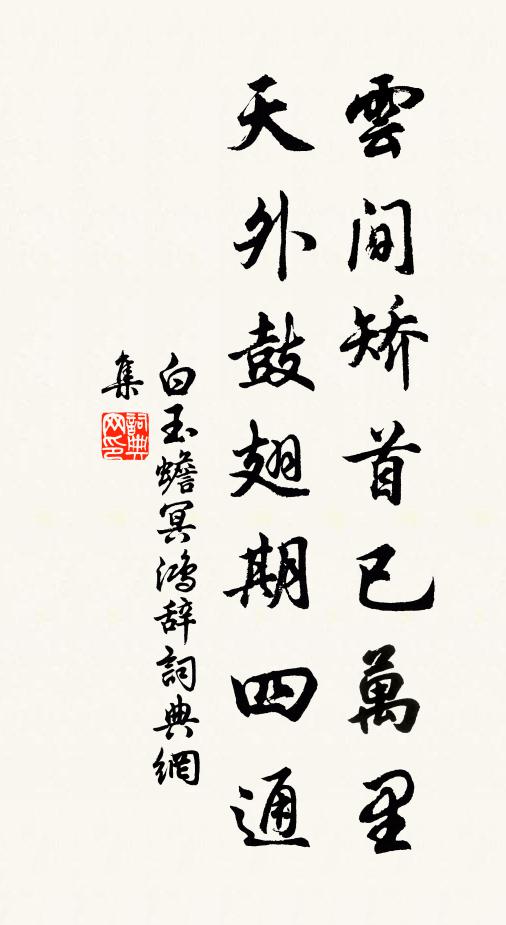 雲間矯首已萬里
天外鼓翅期四通
白玉蟾冥鴻辭詞典網
集
詞典网印